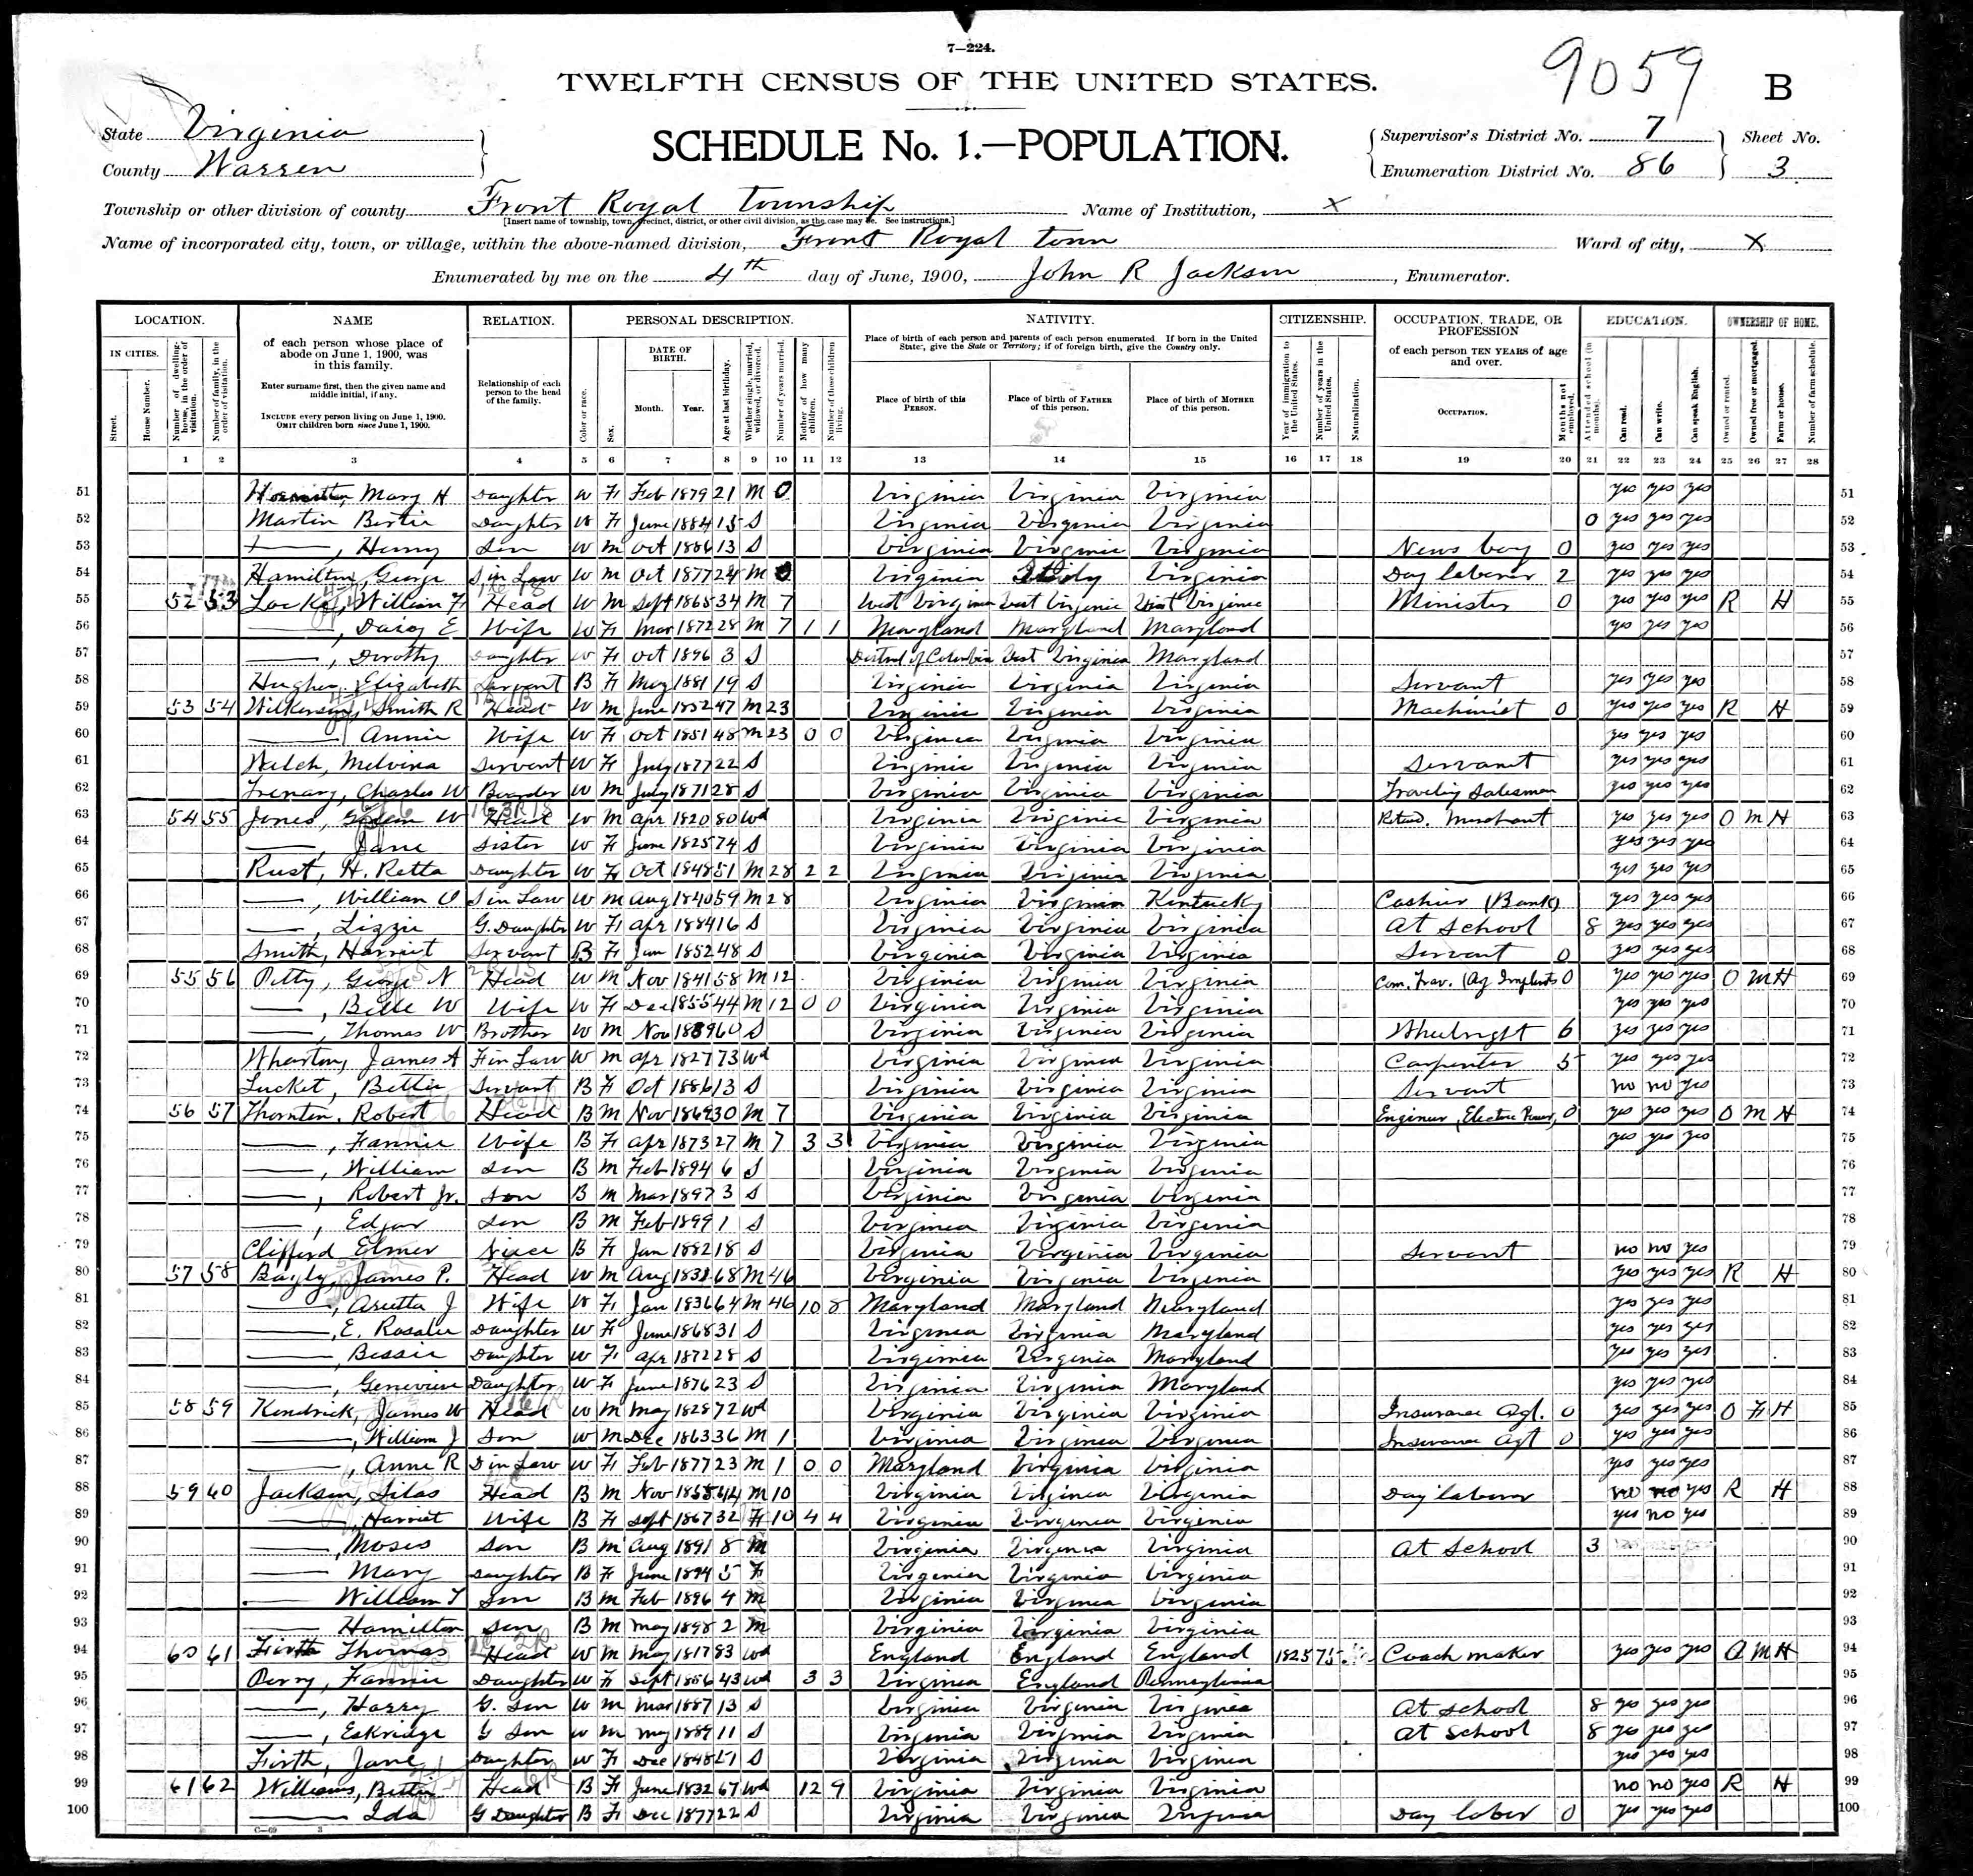 7—224.
9059
TWELFTH CENSUS OF THE UNITED STATES.
B
State Virginia
County Warren
SCHEDULE No. 1.—POPULATION.
Supervisor's District No. 7
Enumeration District No. 86
Sheet No.
3
Township or other division of county Front Royal Township
[Insert name of township, town, precinct, district, or other civil division, as the case may be. See instructions.]
Name of Institution, X
Name of incorporated city, town, or village, within the above-named division, Front Royal Town
Ward of city, X
Enumerated by me on the 4th day of June, 1900, John R Jackson, Enumerator.
LOCATION. NAME RELATION. PERSONAL DESCRIPTION. NATIVITY. CITIZENSHIP. OCCUPATION, TRADE, OR PROFESSION EDUCATION. OWNERSHIP OF HOME.
IN CITIES.
Street.
House Number.
Number of dwelling-house, in the order of visitation.
Number of family, in the order of visitation.
of each person whose place of abode on June 1, 1900, was in this family.
Enter surname first, then the given name and middle initial, if any.
INCLUDE every person living on June 1, 1900.
OMIT children born since June 1, 1900.
Relationship of each person to the head of the family.
Color or race.
Sex.
DATE OF BIRTH.
Month. Year.
Age at last birthday.
Whether single, married, widowed, or divorced.
Number of years married.
Mother of how many children.
Number of these children living.
Place of birth of each person and parents of each person enumerated. If born in the United States, give the State or Territory; if of foreign birth, give the Country only.
Place of birth of this PERSON.
Place of birth of FATHER of this person.
Place of birth of MOTHER of this person.
Year of immigration to the United States.
Number of years in the United States.
Naturalization.
of each person TEN YEARS of age and over.
OCCUPATION.
Months not employed.
Attended school (in months).
Can read.
Can write.
Can speak English.
Owned or rented.
Owned free or mortgaged.
Farm or house.
Number of farm schedule.
1 2 3 4 5 6 7 8 9 10 11 12 13 14 15 16 17 18 19 20 21 22 23 24 25 26 27 28
51 Mary H Daughter W F Feb 1879 21 M 0 Virginia Virginia Virginia yes yes yes 51
52 Martin Bertie Daughter W F June 1884 15 S Virginia Virginia Virginia 0 yes yes yes 52
53 ——, Henry Son W M Oct 1886 13 S Virginia Virginia Virginia News boy 0 yes yes yes 53
54 Hamilton, George S in Law W M Oct 1877 24 M 0 Virginia Italy Virginia Day laborer 2 yes yes yes 54
55 52 53 Locke, William F Head W M Sept 1865 34 M 7 West Virginia West Virginia West Virginia Minister 0 yes yes yes R H 55
56 ——, Daisy E Wife W F Mar 1872 28 M 7 1 1 Maryland Maryland Maryland yes yes yes 56
57 ——, Dorothy Daughter W F Oct 1896 3 S District of Columbia West Virginia Maryland 57
58 Hughes, Elizabeth Servant B F May 1881 19 S Virginia Virginia Virginia Servant yes yes yes 58
59 53 54 Wilkerson, Smith R Head W M June 1852 47 M 23 Virginia Virginia Virginia Machinist 0 yes yes yes R H 59
60 —— Annie Wife W F Oct 1851 48 M 23 0 0 Virginia Virginia Virginia yes yes yes 60
61 Welch, Melvina Servant W F July 1877 22 S Virginia Virginia Virginia Servant yes yes yes 61
62 Trenary, Charles W Boarder W M July 1871 28 S Virginia Virginia Virginia Traveling Salesman yes yes yes 62
63 54 55 Jones, W Head W M Apr 1820 80 Wd Virginia Virginia Virginia Retired. Merchant yes yes yes O M H 63
64 ——, Jane Sister W F June 1825 74 S Virginia Virginia Virginia yes yes yes 64
65 Rust, H. Retta Daughter W F Oct 1848 51 M 28 2 2 Virginia Virginia Virginia yes yes yes 65
66 ——, William O S in Law W M Aug 1840 59 M 28 Virginia Virginia Kentucky Cashier (Bank) yes yes yes 66
67 ——, Lizzie G. Daughter W F Apr 1884 16 S Virginia Virginia Virginia At School 8 yes yes yes 67
68 Smith, Harriet Servant B F Jan 1852 48 S Virginia Virginia Virginia Servant 0 yes yes yes 68
69 55 56 Petty, George N Head W M Nov 1841 58 M 12 Virginia Virginia Virginia Com. Trav. (Ag Implmts 0 yes yes yes O M H 69
70 ——, Belle W Wife W F Dec 1855 44 M 12 0 0 Virginia Virginia Virginia yes yes yes 70
71 ——, Thomas W Brother W M Nov 1839 60 S Virginia Virginia Virginia Wheelwright 6 yes yes yes 71
72 Wharton, James A F in Law W M Apr 1827 73 Wd Virginia Virginia Virginia Carpenter 5 yes yes yes 72
73 Lucket, Bettie Servant B F Oct 1886 13 S Virginia Virginia Virginia Servant no no yes 73
74 56 57 Thornton, Robert Head B M Nov 1869 30 M 7 Virginia Virginia Virginia Engineer, Electric Power, 0 yes yes yes O M H 74
75 ——, Fannie Wife B F Apr 1873 27 M 7 3 3 Virginia Virginia Virginia yes yes yes 75
76 ——, William Son B M Feb 1894 6 S Virginia Virginia Virginia 76
77 ——, Robert Jr. Son B M Mar 1897 3 S Virginia Virginia Virginia 77
78 ——, Edgar Son B M Feb 1899 1 S Virginia Virginia Virginia 78
79 Clifford Elmer Niece B F Jan 1882 18 S Virginia Virginia Virginia Servant no no yes 79
80 57 58 Bayly, James P. Head W M Aug 1831 68 M 46 Virginia Virginia Virginia yes yes yes R H 80
81 ——, J Wife W F Jan 1836 64 M 46 10 8 Maryland Maryland Maryland yes yes yes 81
82 ——, E. Rosalie Daughter W F June 1868 31 S Virginia Virginia Maryland yes yes yes 82
83 ——, Bessie Daughter W F Apr 1872 28 S Virginia Virginia Maryland yes yes yes 83
84 ——, Genevieve Daughter W F June 1876 23 S Virginia Virginia Maryland yes yes yes 84
85 58 59 Kendrick, James W Head W M May 1828 72 Wd Virginia Virginia Virginia Insurance Agt. 0 yes yes yes O F H 85
86 ——, William J Son W M Dec 1863 36 M 1 Virginia Virginia Virginia Insurance Agt 0 yes yes yes 86
87 ——, Anne R D in Law W F Feb 1877 23 M 1 0 0 Maryland Virginia Virginia yes yes yes 87
88 59 60 Jackson, Silas Head B M Nov 1855 44 M 10 Virginia Virginia Virginia Day laborer no no yes R H 88
89 ——, Harriet Wife B F Sept 1867 32 F 10 4 4 Virginia Virginia Virginia yes no yes 89
90 ——, Moses Son B M Aug 1891 8 M Virginia Virginia Virginia At School 3 90
91 —— Mary Daughter B F June 1894 5 F Virginia Virginia Virginia 91
92 —— William T Son B M Feb 1896 4 M Virginia Virginia Virginia 92
93 —— Hamilton Son B M May 1898 2 M Virginia Virginia Virginia 93
94 60 61 Firth Thomas Head W M May 1817 83 Wd England England England 1825 75 Coach maker yes yes yes O M H 94
95 Perry, Fannie Daughter W F Sept 1856 43 Wd 3 3 Virginia England Pennsylvania 95
96 ——, Harry G. Son W M Mar 1887 13 S Virginia Virginia Virginia At school 8 yes yes yes 96
97 ——, Eskridge G Son W M May 1889 11 S Virginia Virginia Virginia At school 8 yes yes yes 97
98 Firth, Jane Daughter W F Dec 1848 51 S Virginia Virginia Virginia yes yes yes 98
99 61 62 Williams, Bettie Head B F June 1832 67 Wd 12 9 Virginia Virginia Virginia no no yes R H 99
100 —— Ida G Daughter B F Dec 1877 22 S Virginia Virginia Virginia Day labor 0 yes yes yes 100
C—69 3